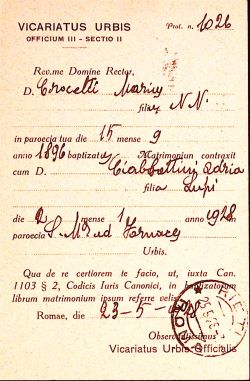 VICARIATUS URBIS
OFFICIUM III - SECTIO II
Prot. n. 1026
Rev.me Domine Rector,
D. Crocetti Mario
filius N N.
in paroecia tua die 15 mense 9
anno 1896 baptizatus Matrimonium contraxit
cum D. Ciabattini Adria
filia Lupi
die 2 mense 1 anno 1928
paroecia S. M. ad Fornaces
Urbis.
Qua de re certiorem te facio, ut, iuxta Can.
1103 § 2, Codicis Iuris Canonici, in baptizatorum
librum matrimonium ipsum referre velis.
Romae, die 23-5-
Obser
Vicariatus Urbis Officialis